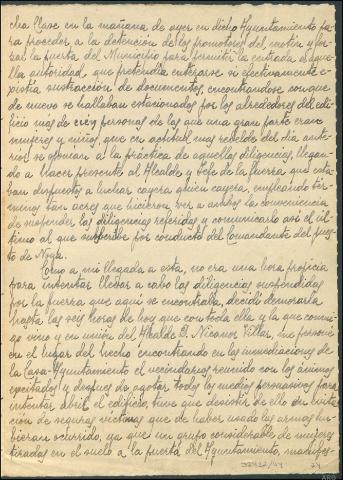 cha llave en la mañana de ayer en dicho Ayuntamiento pa-
ra proceder a la detención de los promotores del motín y for-
zar la puerta del Municipio para permitir la entrada de aque-
lla autoridad, que pretendía enterarse si efectivamente e-
xistía sustracción de documentos, encontrandose con que
de nuevo se hallaban estacionados por los alrededores del edi-
ficio más de cien personas de las que una gran parte eran
mujeres y niños, que en actitud mas rebelde del dia ante-
rior se oponian a la práctica de aquellas diligencias, llegan-
do a hacer presente al Alcalde y Jefe de la fuerza, que esta-
ban dispuestos a luchar cayera quien cayera, empleando tér-
minos tan acres que hicieron ver a ambos la conveniencia
de suspender las diligencias referidas y comunicarlo así el úl-
timo al que suscribe por conducto del Comandante del pues-
to de Noya.
Como a mi llegada a esta, no era una hora propicia
para intentar llevar a cabo las diligencias suspendidas
por la fuerza que aqui se encontraba, decidí demorarla
hasta las seis horas de hoy que con toda ella y la que conmi-
go vino y en unión del Alcalde D. Nicanor Villar, me personé
en el lugar del hecho encontrando en las inmediaciones de
la Casa-Ayuntamiento el vecindario reunido con los ánimos
excitados y despues de agotar todos los medios persuasivos para
intentar abrir el edificio, tuve que desistir de ello en evita-
ción de seguras victimas que de haber usado las armas hu-
bieran ocurrido, ya que un grupo considerable de mujeres
tiradas en el suelo a la puerta del Ayuntamiento, manifes-